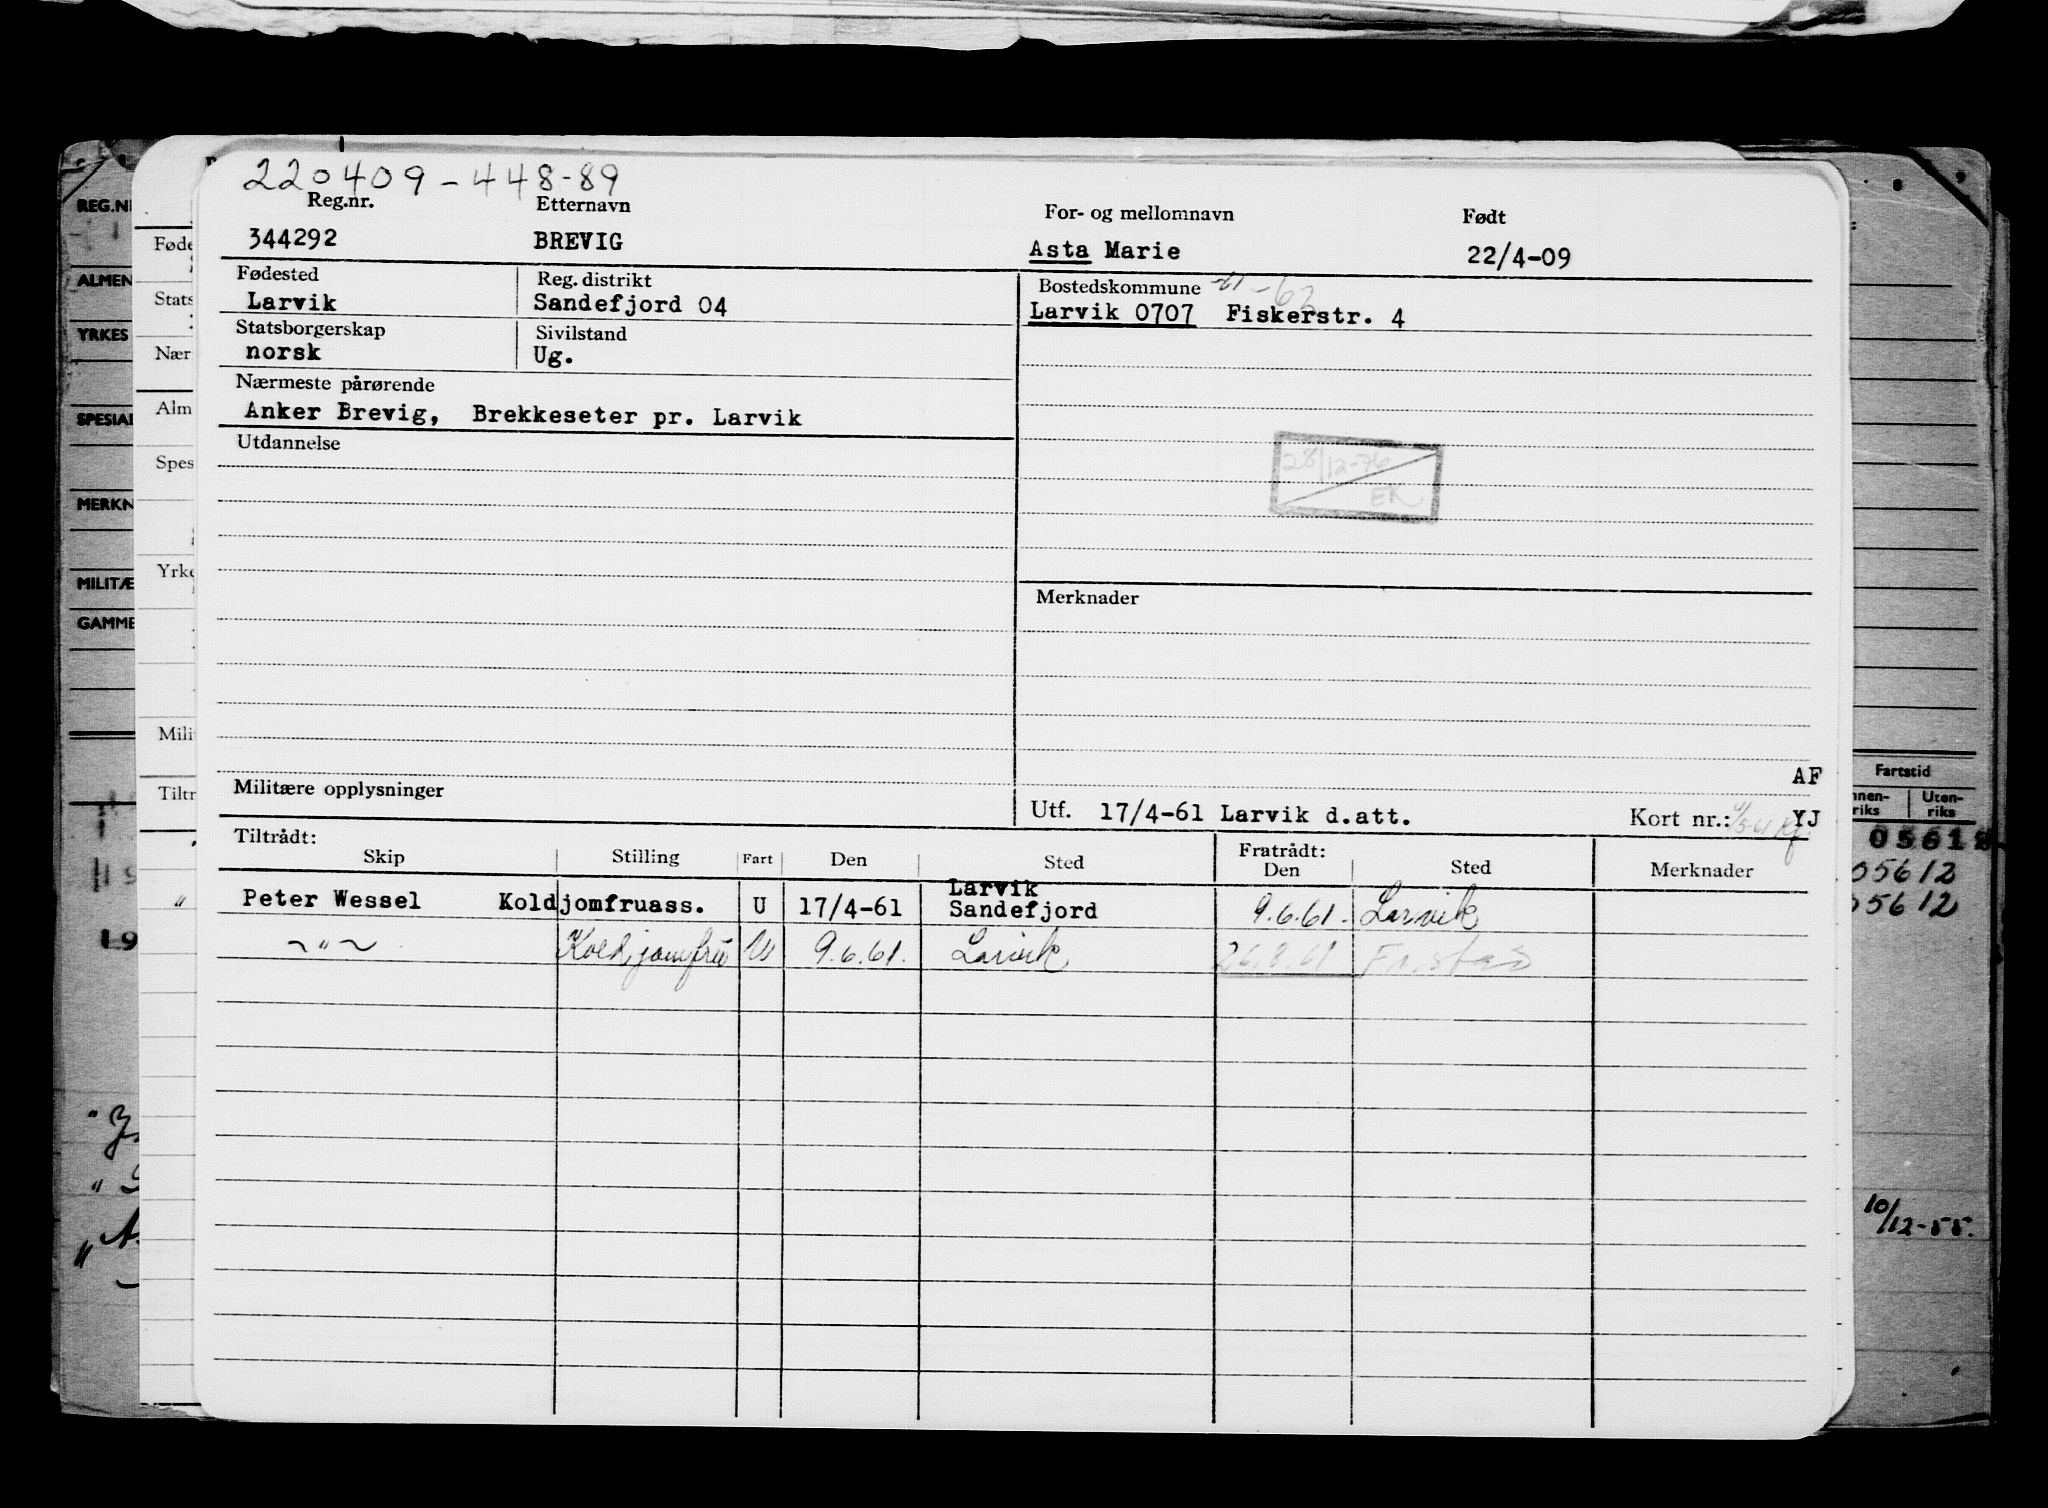 220409-448-89
Reg.nr. Etternavn For- og mellomnavn Født
344292 BREVIG Asta Marie 22/4-09
Fødested Reg. distrikt Bostedskommune
Larvik Sandefjord 04 Larvik 0707 Fiskerstr. 4
Statsborgerskap Sivilstand
norsk Ug.
Nærmeste pårørende
Anker Brevig, Brekkeseter pr. Larvik
Utdannelse
28/12-76
EK
Merknader
AF
Militære opplysninger
Utf. 17/4-61 Larvik d.att. Kort nr.: YJ
Tiltrådt: Fratrådt:
Skip Stilling Fart Den Sted Den Sted Merknader
Peter Wessel Koldjomfruass. U 17/4-61 Larvik Sandefjord 9.6.61. Larvik
~"~ Koldjomfru U 9.6.61. Larvik 26.8.61 Fr.stad
REG.N
ALMEN
YRKES
SPESIAL
MERKN
MILITÆ
GAMME
Føde
Stats
Nær
Alm
Spes
Yrke
Mili
Tiltr
Fartstid
nnen-riks Uten-riks
05612
05612
10/12-55.